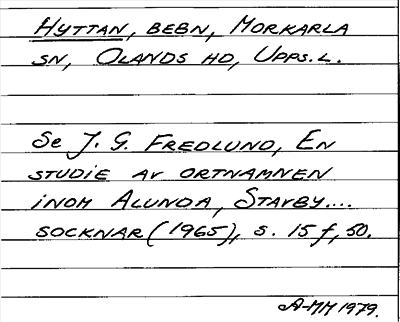 HYTTAN, BEBN, MORKARLA
SN, OLANDS HD, UPPS. L.
Se J. G. FREDLUND, EN
STUDIE AV ORTNAMNEN
INOM ALUNDA, STAVBY....
SOCKNAR (1965), s. 15 f, 50.
A-MM 1979.